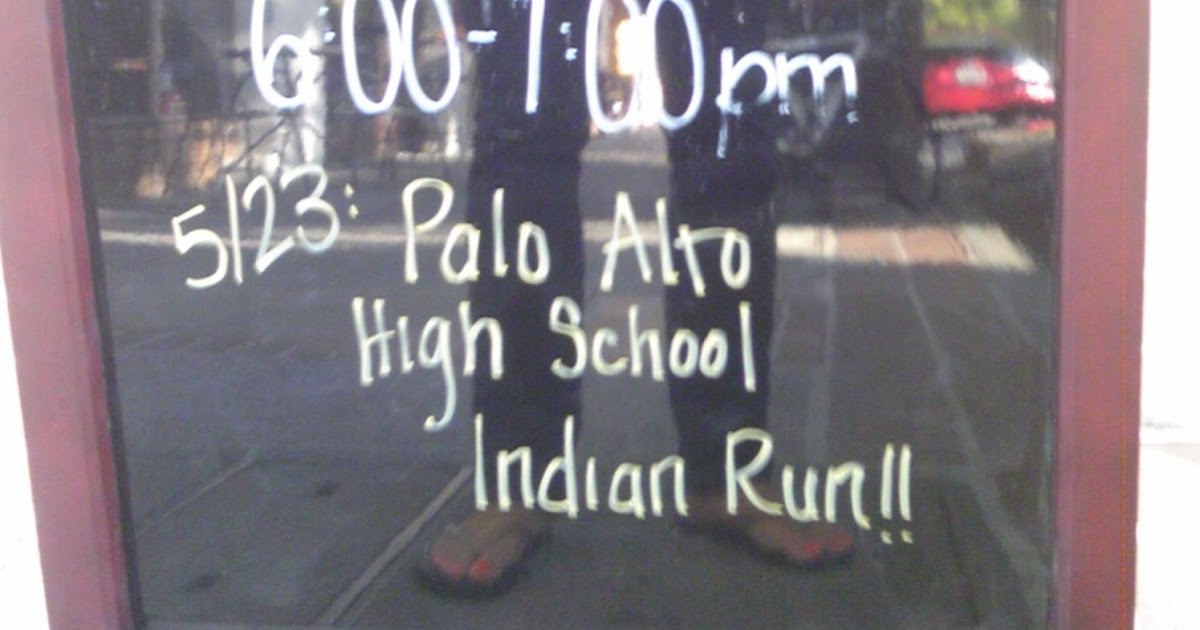 6:00-7:00pm
5/23: Palo Alto
High School
Indian Run!!